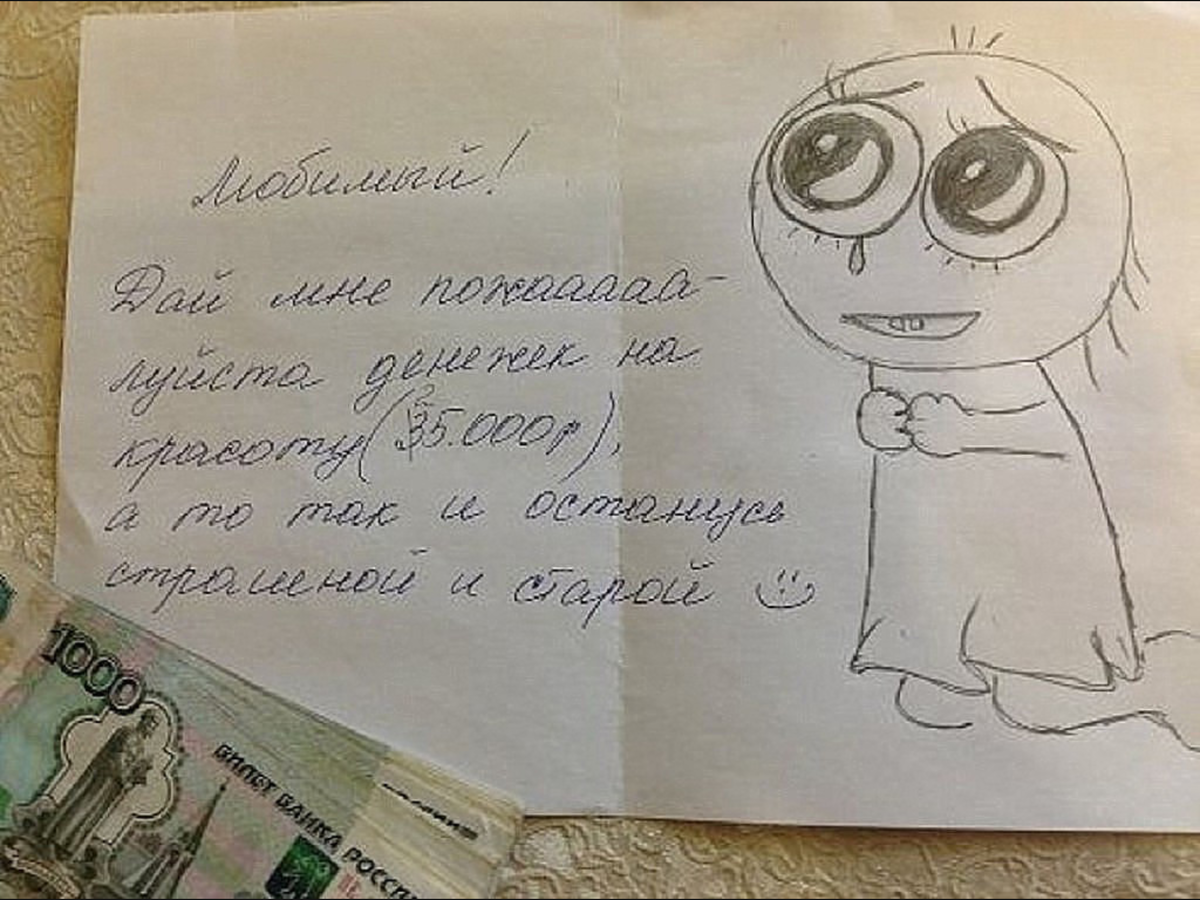 Любимый!
Дай мне пожаааааа-
луйста денежек на
красоту (35.000р),
а то так и останусь
страшной и старой
1000
БИЛЕТ БАНКА РОССИ